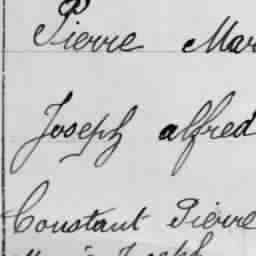 Pierre Mar
Joseph alfred
Constant Pierre
Joseph